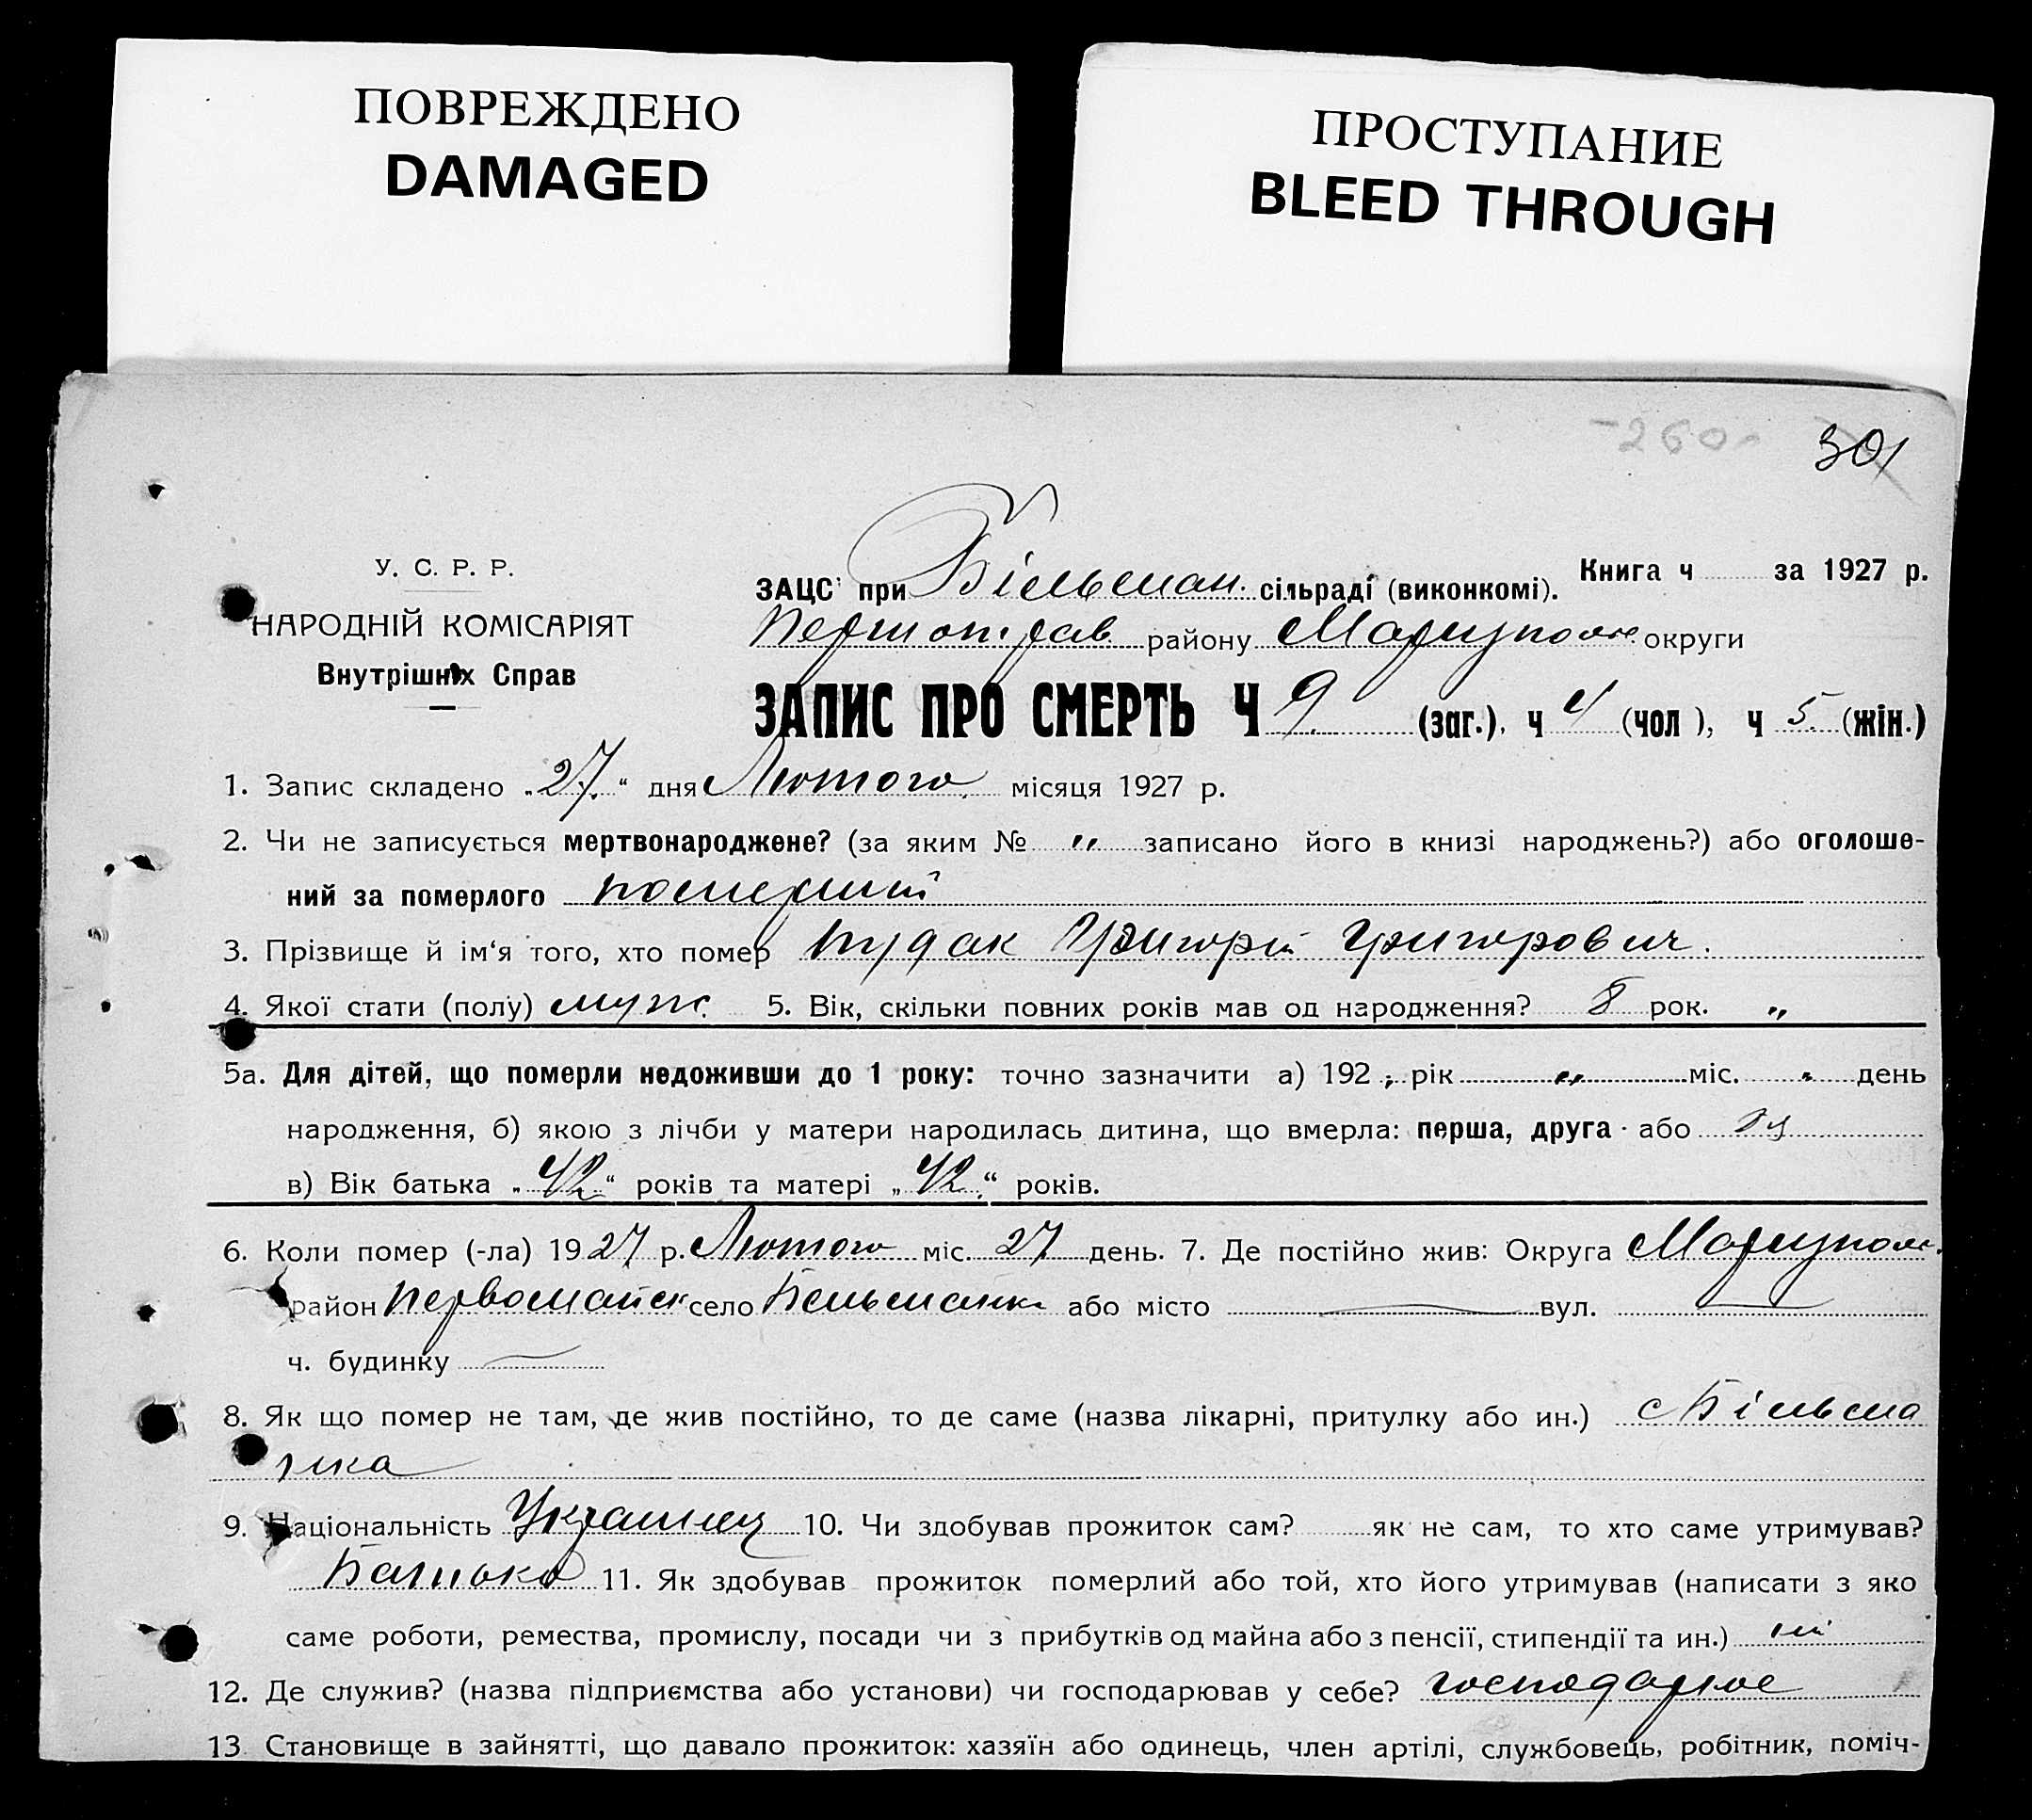 ПОВРЕЖДЕНО
DAMAGED
ПРОСТУПАНИЕ
BLEED THROUGH
260
301
У. С. Р. Р.
НАРОДНІЙ КОМІСАРІЯТ
Внутрішніх Справ
Книга ч за 1927 р.
ЗАЦС при Більман. сільраді (виконкомі).
району Мариупол. округи
ЗАПИС ПРО СМЕРТЬ Ч 9. (заг.), ч 4 (чол), ч 5. (жін.)
1. Запис складено „27.“ дня Лютого місяця 1927 р.
2. Чи не записується мертвонароджене? (за яким № „ записано його в книзі народжень?) або оголоше-
ний за померлого померший
3. Прізвище й ім‘я того, хто помер Григорій Григорович.
4. Якої стати (полу) муж. 5. Вік, скільки повних років мав од народження? 8 рок. „
5а. Для дітей, що померли недоживши до 1 року: точно зазначити а) 192 рік „ міс. „ день
народження, б) якою з лічби у матери народилась дитина, що вмерла: перша, друга або
в) Вік батька „42“ років та матері „42.“ років.
6. Коли помер (-ла) 1927 р. Лютого міс. 27 день. 7. Де постійно жив: Округа Мариупол.
район Первомайск село Бельманка або місто — вул. —
ч. будинку —
8. Як що помер не там, де жив постійно, то де саме (назва лікарні, притулку або ин.) с Більма
нка
9. Національність Украинец 10. Чи здобував прожиток сам? як не сам, то хто саме утримував?
Батько 11. Як здобував прожиток померлий або той, хто його утримував (написати з яко
саме роботи, ремества, промислу, посади чи з прибутків од майна або з пенсії, стипендії та ин.)
12. Де служив? (назва підприємства або установи) чи господарював у себе?
13 Становище в зайнятті, що давало прожиток: хазяїн або одинець, член артілі, службовець, робітник, поміч-